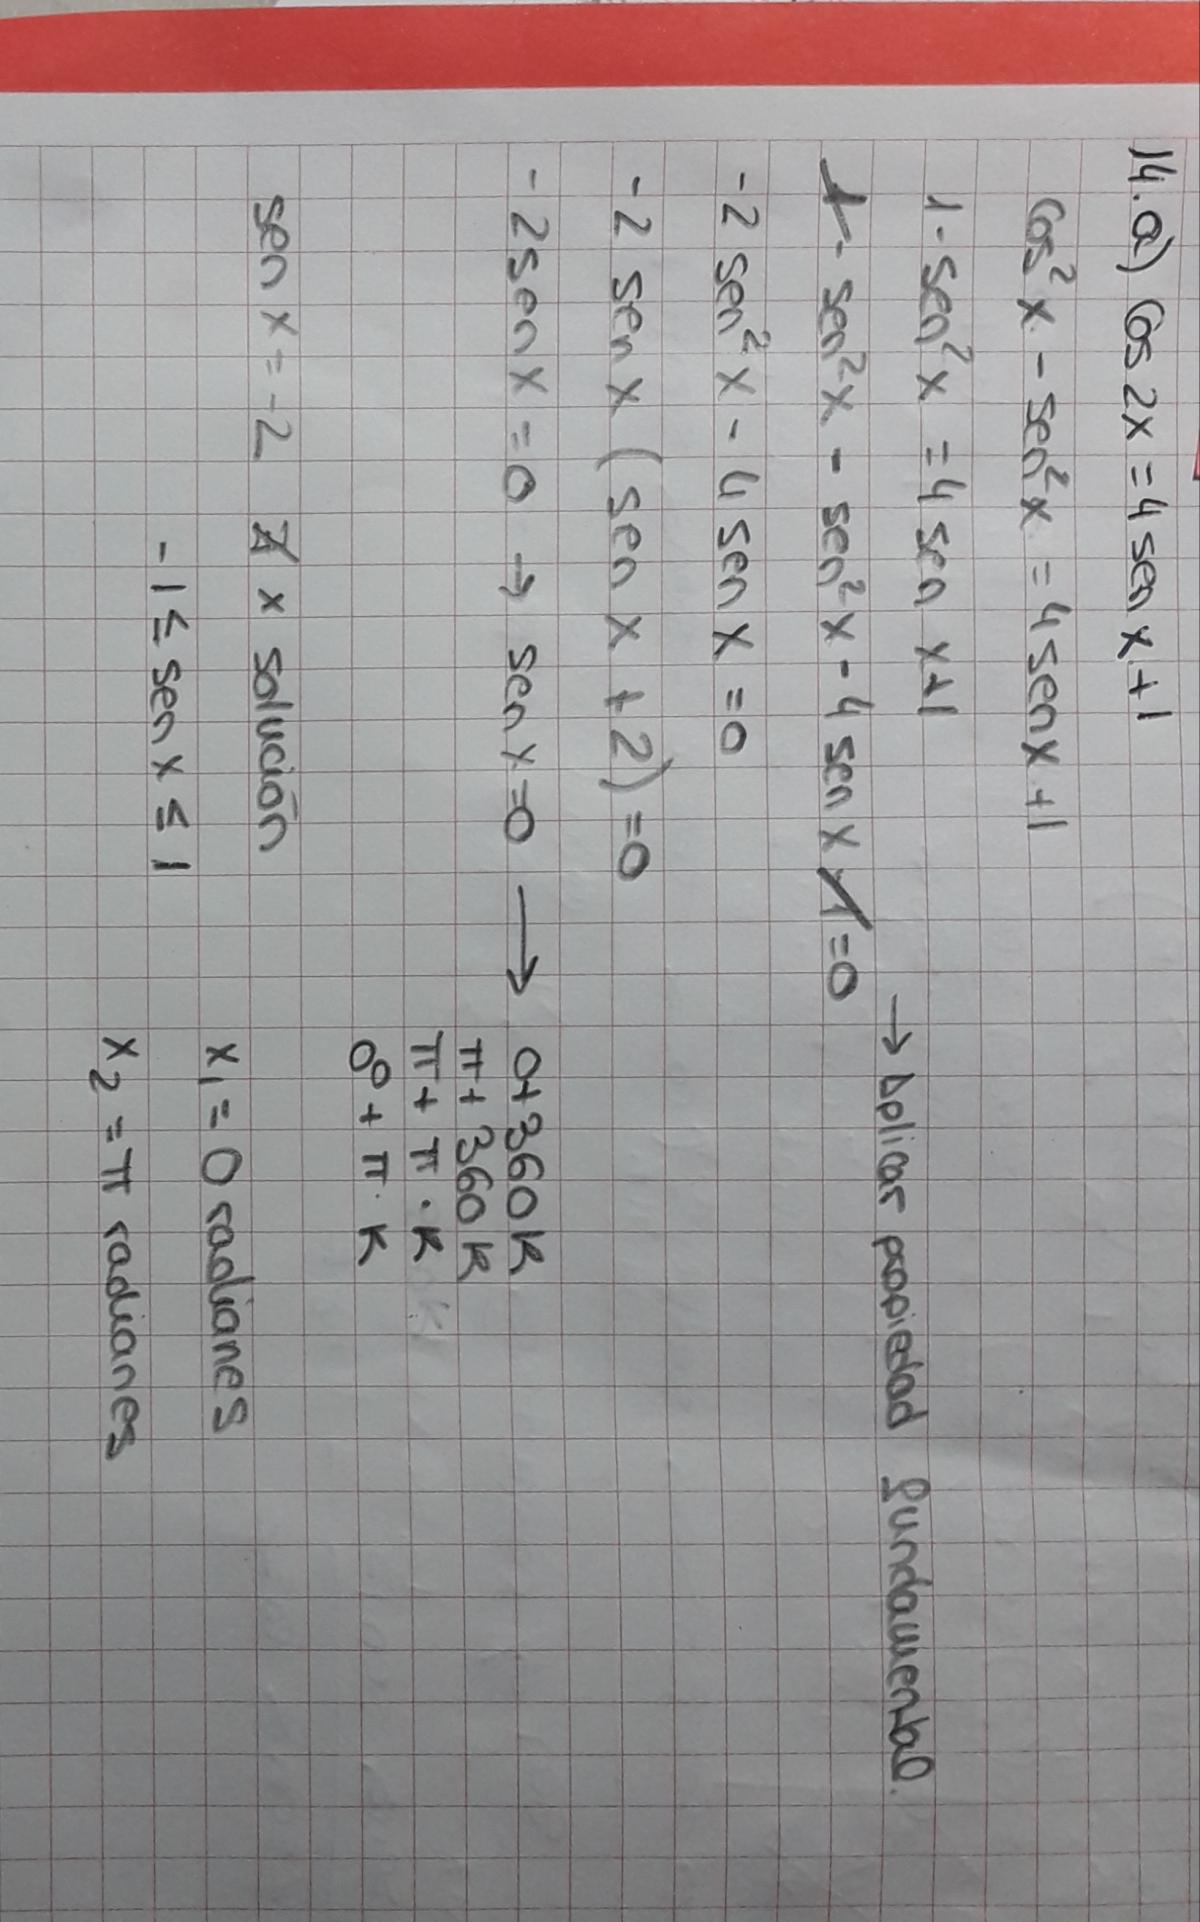 14.a) Cos 2x = 4 sen x + 1
Cos² x - sen² x = 4 sen x + 1
1 - sen² x = 4 sen x + 1
→ Aplicar propiedad fundamental.
1 - sen² x - sen² x - 4 sen x - 1 = 0
-2 sen² x - 4 sen x = 0
-2 sen x (sen x + 2) = 0
-2 sen x = 0 → sen x = 0 → 0 + 360 K
π + 360 K
π + π · K
0º + π · K
sen x = -2 ∄ x solución
-1 ≤ sen x ≤ 1
x₁ = 0 radianes
x₂ = π radianes